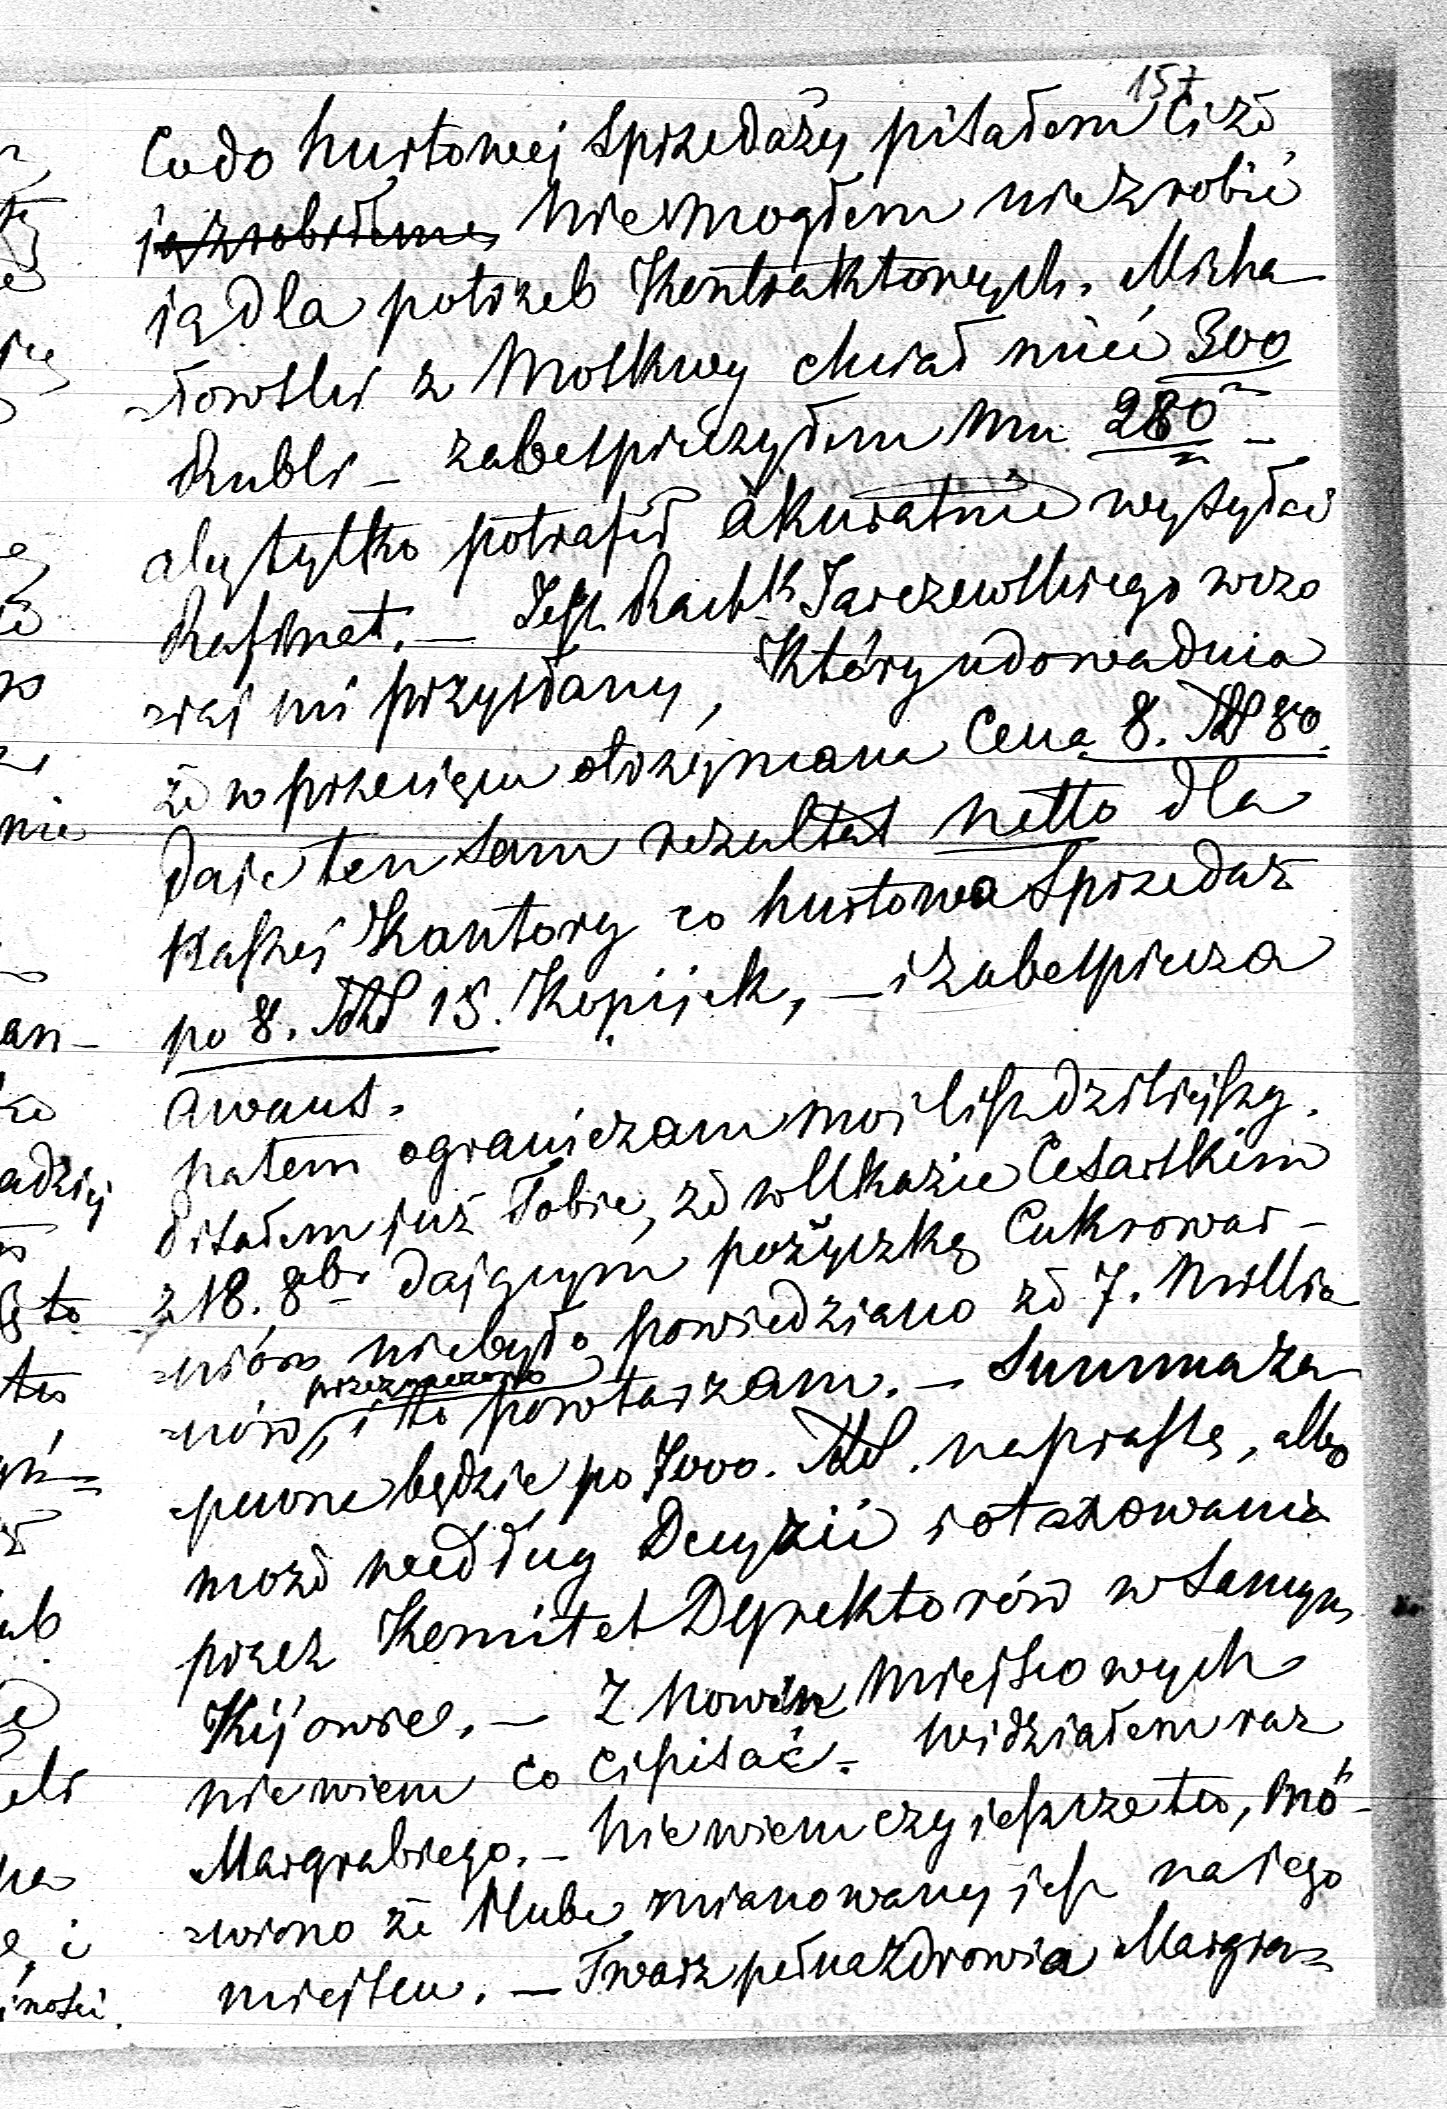 157
Co do hurtowej sprzedaży pisałem Ci że
ją zrobiłem niemogłem niezrobić
ją dla potrzeb Kontraktowych. Micha
-łowski z Moskwy chciał mieć 300
Rubli – zabespieczyłem mu 280 –
aby tylko potrafił akuratnie wysyłać
Rafinat. – Jest Rach<sup>k</sup> Jarczewskiego wczo
-raj mi przysłany, który udowadnia
że w przecięciu otrzymana Cena 8. RS 80.
Daje ten sam rezultat netto dla
Kassy Kantory co hurtowa Sprzedaż
po 8. RS 15. Kopijek, – i zabespiecza
awans.
Natem ograniczam mój list dzisiejszy.
Pisałem już Tobie, że w Ukazie Cesarskim
z 18. 8br dającym pożyczkę Cukrowar-
-niów niebyło powiedziano że 7. Millio
przeznaczono
-nów, i to powtarzam. – Summa za
-pewne będzie po 7000. RS. na prassę, albo
może według Decyzii i otaxowania
przez Komitet Dyrektorów w samym
Kijowie. – Z Nowin Miejscowych
nie wiem co Ci pisać. Widziałem raz
Margrabiego. – Nie wiem czy jeszcze tu, mó-
-wiono że mianowany jest na jego
miejscu. – Twarz pełna zdrowia Margra=
nie
an-
adziej
to
tu
ub
eli
i